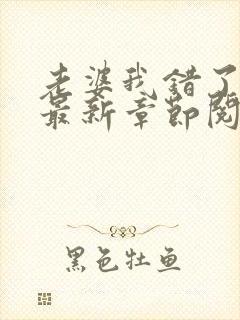 老婆我错了
最新章节阅
黑色牡鱼